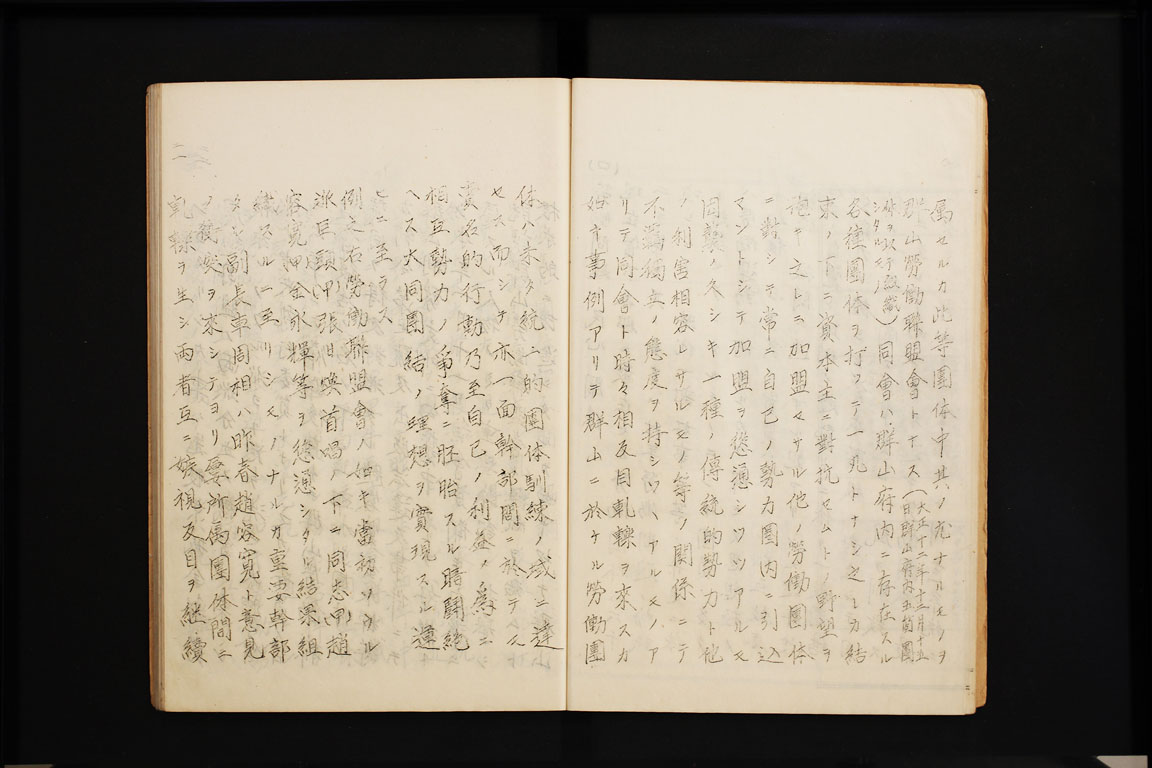 属セルカ此等團体中其ノ尤ナルモノヲ
群山勞働聯盟會トナス（大正十二年十二月十五日群山府内五箇團
体ヲ以テ設識シタルモノ）同會ハ群山府内ニ存在スル
各種團体ヲ打ツテ一丸トナシ之レカ結
束ノ下ニ資本主ニ對抗セムトノ野望ヲ
抱キ之レニ加盟セサル他ノ勞働團体
ニ對シテ常ニ自己ノ勢力圏内ニ引込
マントシテ加盟ヲ慫慂シツツアルモ
因襲ノ久シキ一種ノ傳統的勢力ト他
ノ利害相容レサルモノ等ノ関係ニテ
不羈獨立ノ態度ヲ持シツヽアルモノア
リテ同會ト時々相反目軋轢ヲ來スカ
如キ事例アリテ群山ニ於ケル勞働團
体ハ未タ統一的團体馴練ノ域ニ達
セス而シテ亦一面幹部間ニ於テハ
賣名的行動乃至自己ノ利益ノ為ニシ
相互勢力ノ爭奪ニ胚胎スル暗鬪絶
ヘス大同團結ノ理想ヲ實現スル運
ヒニ至ラス
例之右勞働聯盟會ノ如キ當初ソウル
派巨頭(甲)張日煥首唱ノ下ニ同志(甲)趙
容寛(甲)金永輝等ヲ慫慂シタル結果組
織スルニ至リシモノナルカ重要幹部
タル副長車周相ハ昨春趙容寛ト意見
ノ衝突ヲ來シテヨリ要所属團体間ニ
軋轢ヲ生シ両者互ニ嫉視反目ヲ継續
二